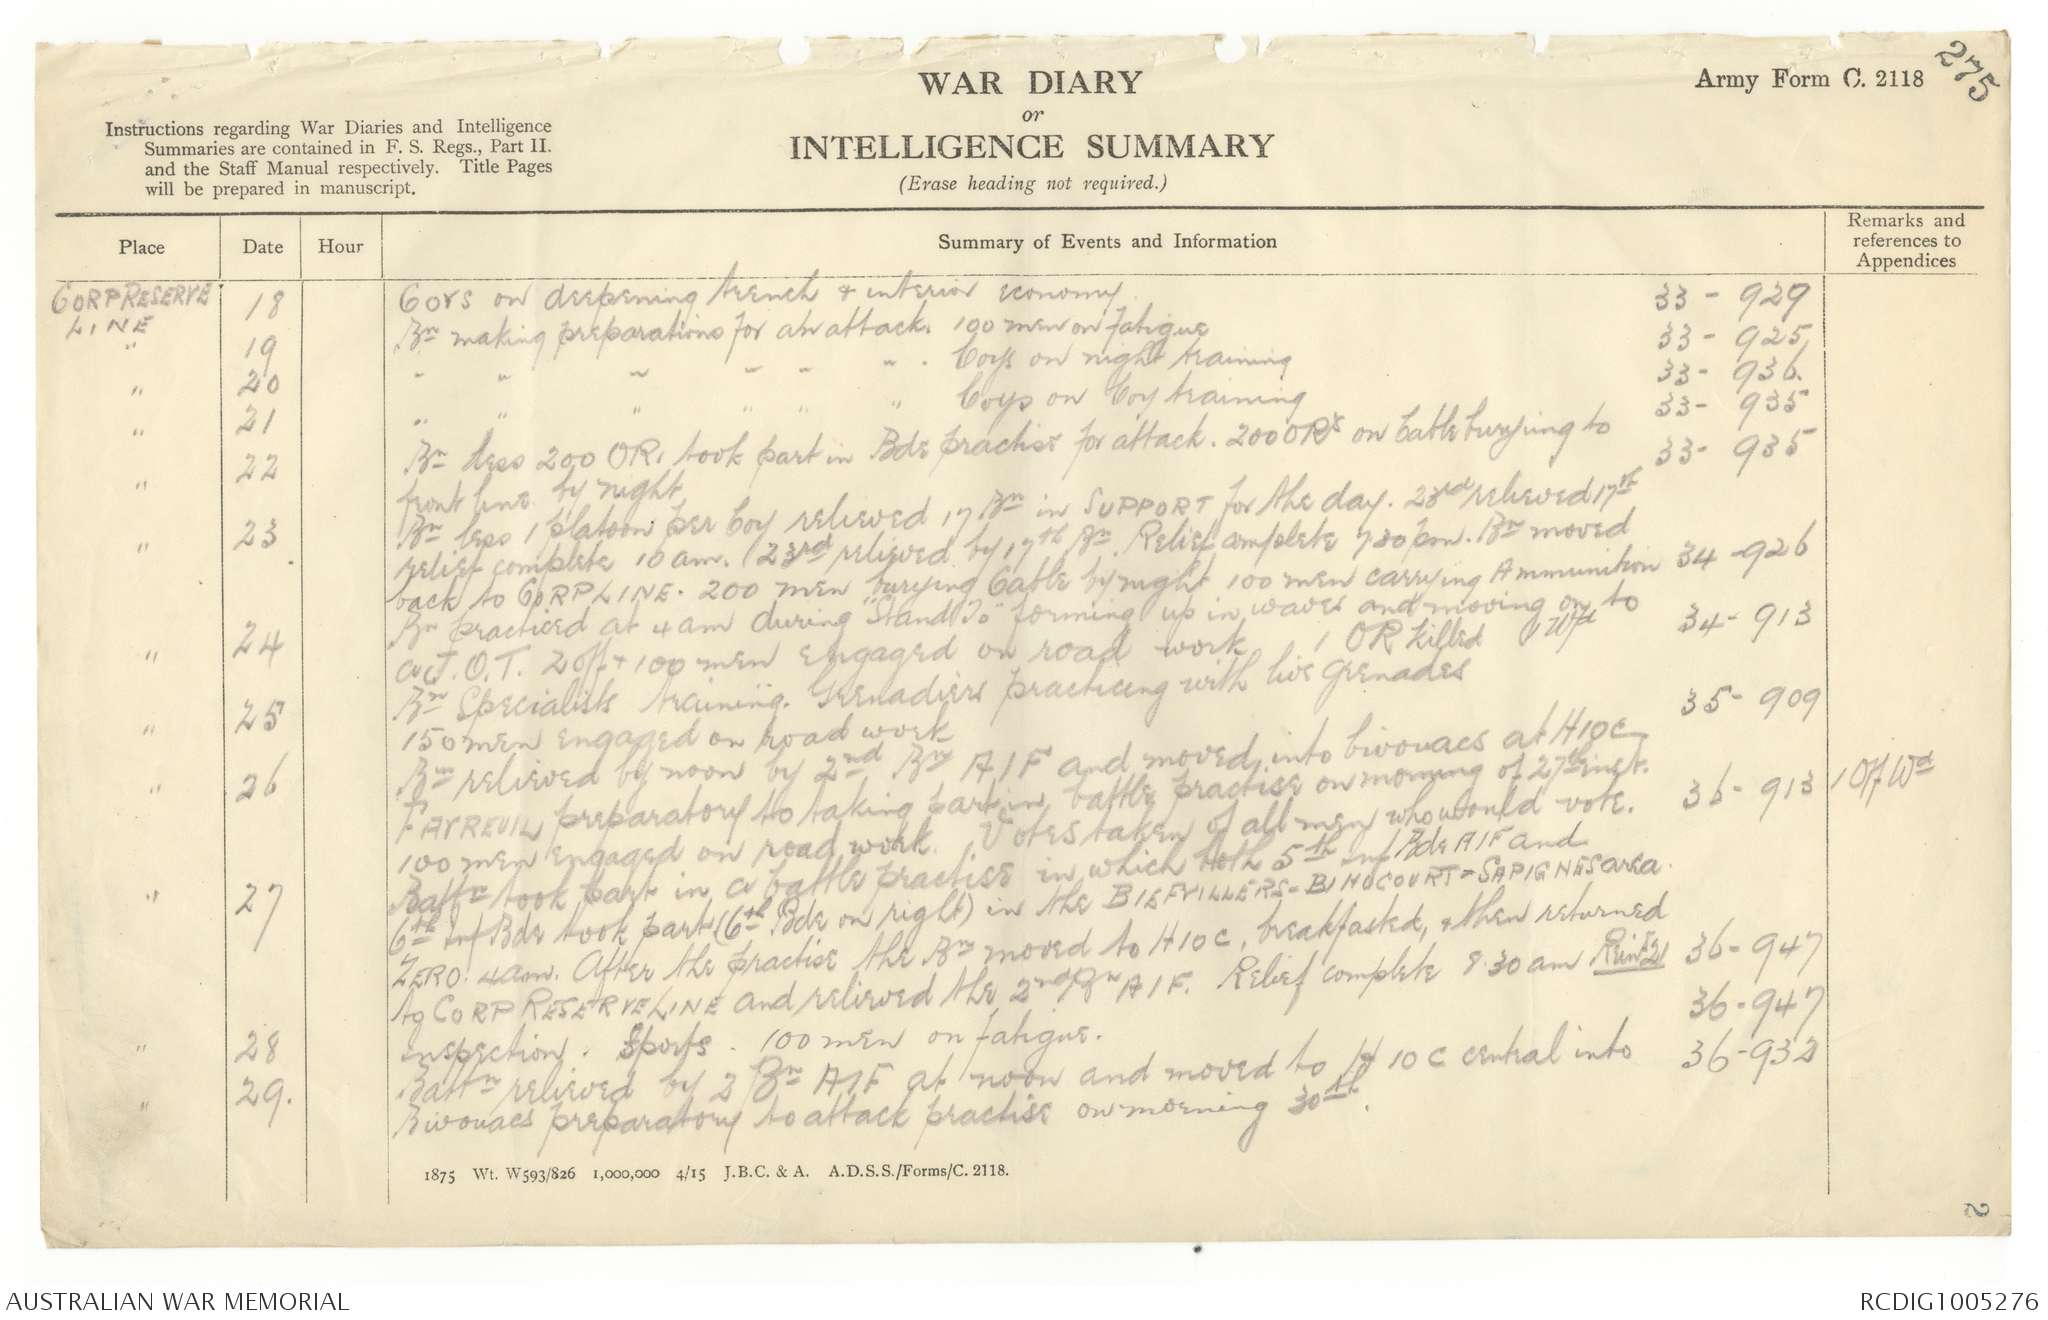 275
Army Form C. 2118
WAR DIARY
or
INTELLIGENCE SUMMARY
(Erase heading not required.)
Instructions regarding War Diaries and Intelligence
Summaries are contained in F. S. Regs., Part II.
and the Staff Manual respectively. Title Pages
will be prepared in manuscript.
Place Date Hour Summary of Events and Information Remarks and references to Appendices
CORP RESERVE 18 Coys on deepening trench & interior economy 33 - 929
LINE
" 19 Bn making preparations for an attack. 100 men on fatigue 33 - 925
" 20 " " " " " " . Coys on night training 33 - 936.
" 21 " " " " " " Coys on Coy training 33 - 935
" 22 Bn less 200 OR. took part in Bde practise for attack. 200 ORs on Cable burying to 33 - 935
front line by night
" 23 Bn less 1 platoon per Coy relieved 17 Bn in SUPPORT for the day. 23rd relieved 17th
relief complete 10 am. (23rd relieved by 17th Bn Relief complete 730pm. Bn moved
back to CORP LINE. 200 men burying Cable by night 100 men carrying Ammunition 34 - 926
" 24 Bn practiced at 4 am during "Stand To" forming up in waves and moving on to
a J.O.T. 2 off & 100 men engaged on road work 1 OR killed 1 Wd 34 - 913
" 25 Bn Specialists training. Grenadiers practicing with live grenades
150 men engaged on road work 35 - 909
" 26 Bn relieved by noon by 2nd Bn AIF and moved into bivouacs at H10c
FAVREUIL preparatory to taking part in battle practise on morning of 27th inst. 36 - 913 1 Off Wd
100 men engaged on road work. Votes taken of all men who would vote.
" 27 Battn took part in a battle practise in which both 5th Inf Bde AIF and
6th Inf Bde took part (6th Bde on right) in the BIEFVILLERS - BIHUCOURT - SAPIGNES area.
ZERO. 4am. After the practise the Bn moved to H10c, breakfasted, & then returned
to CORP RESERVE LINE and relieved the 2nd Bn AIF. Relief complete 8.30 am Rein 21 36 - 947
" 28 Inspection. Sports. 100 men on fatigue. 36 - 947
" 29. Battn relieved by 2 Bn AIF at noon and moved to H10c central into 36 - 932
Bivouacs preparatory to attack practise on morning 30th.
1875 Wt. W593/826 1,000,000 4/15 J.B.C. & A. A.D.S.S./Forms/C. 2118.
2
AUSTRALIAN WAR MEMORIAL
RCDIG1005276